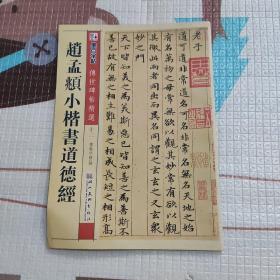 老子
道可道非常道名可名非常名無名天地之始
有名萬物之母常無欲以觀其妙常有欲以觀
其徼此兩者同出而異名同謂之玄玄之又玄衆
妙之門
天下皆知美之為美斯惡已皆知善之為善斯不
善已故有無之相生難易之相成長短之相形高
傳世碑帖精選
趙孟頫小楷書道德經